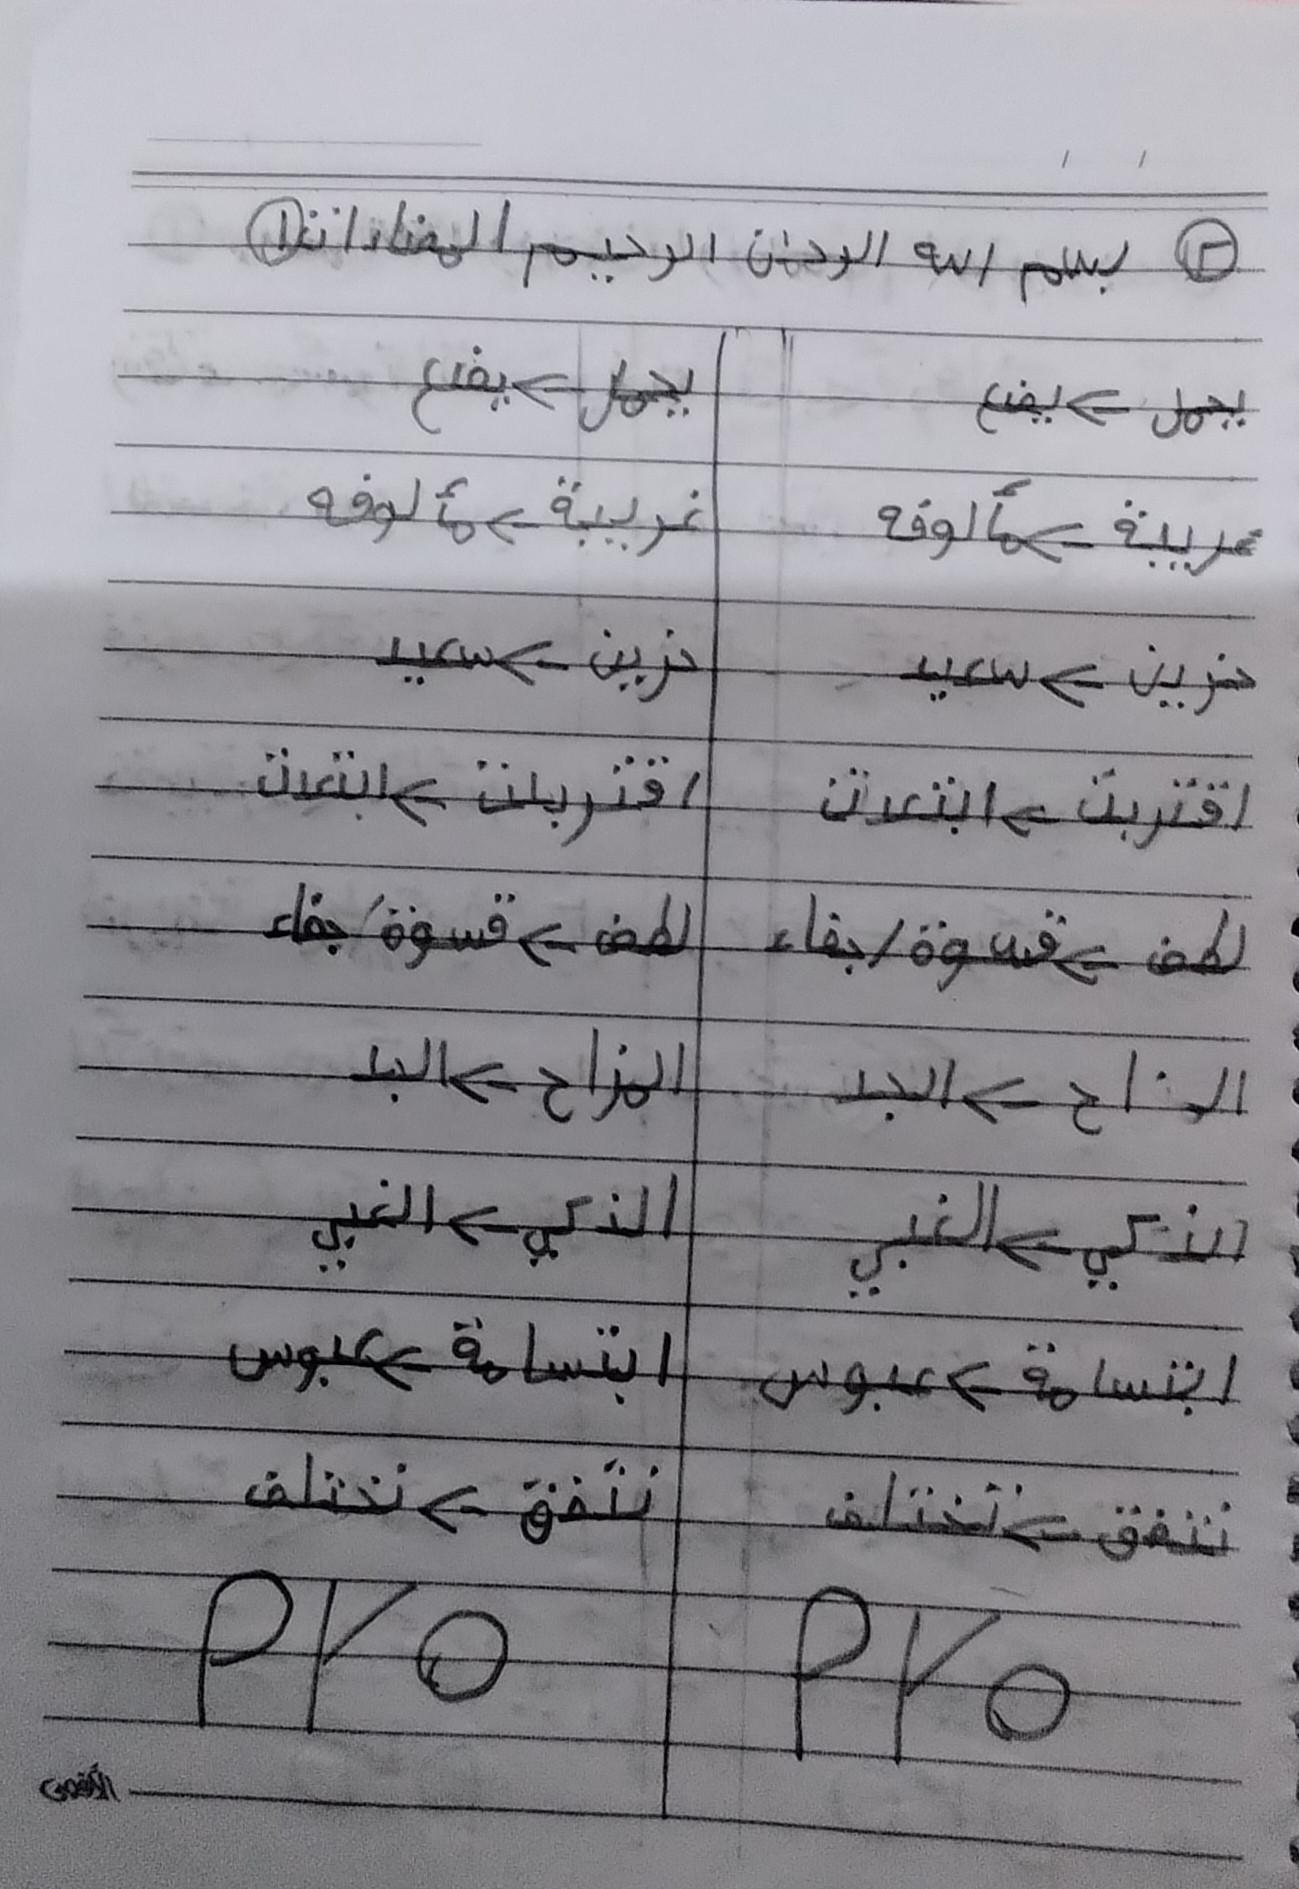 ٢ بسم الله الرحمن الرحيم المضادات ١
يجمل -> يضع    يجمل -> يضع
غريبة -> مألوفه    غريبة -> مألوفه
حزين -> سعيد    حزين -> سعيد
اقتربت -> ابتعدت    اقتربت -> ابتعدت
لطف -> قسوة/جفاء    لطف -> قسوة/جفاء
المزاح -> الجد    المزاح -> الجد
الذكي -> الغبي    الذكي -> الغبي
ابتسامة -> عبوس    ابتسامة -> عبوس
نتفق -> نختلف    نتفق -> نختلف
٩٢٥    ٩٢٥
الأقصى